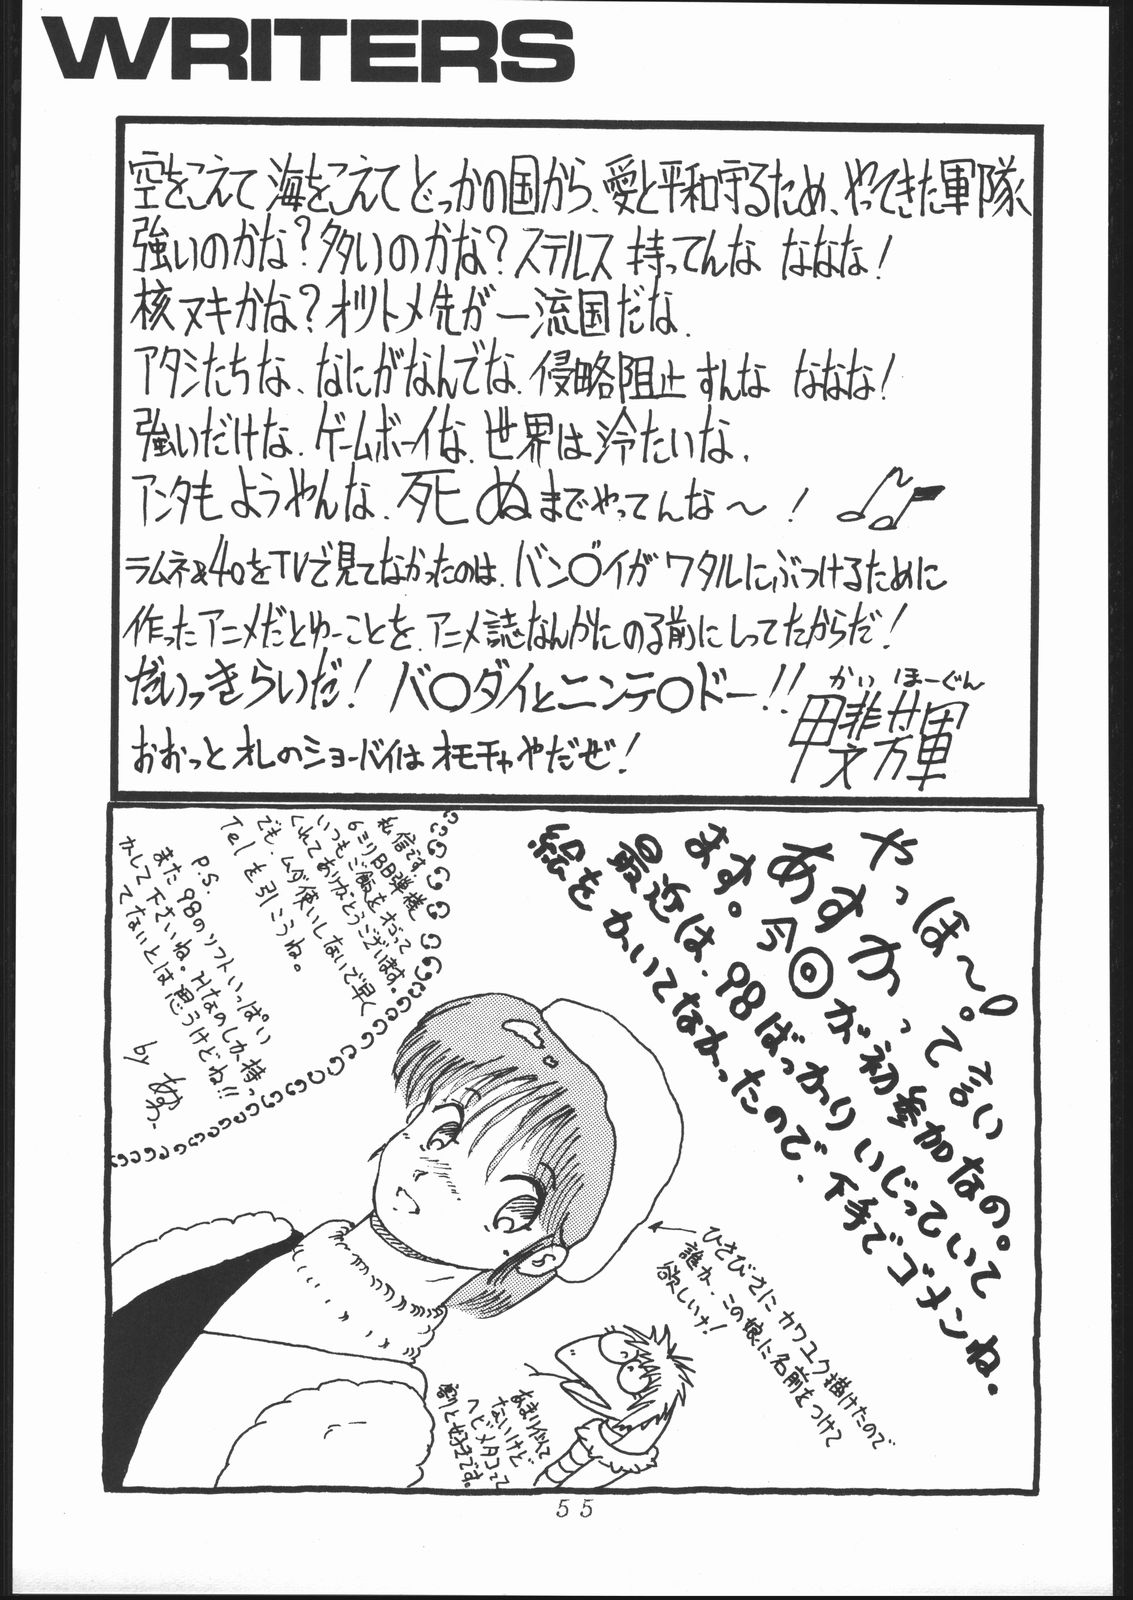 WRITERS
空をこえて 海をこえて どっかの国から、愛と平和守るため、やってきた軍隊
強いのかな？多いのかな？ステルス 持ってんな ななな！
核ヌキかな？オツトメ先が一流国だな.
アタシたちな、なにがなんでな. 侵略阻止すんな ななな！
強いだけな. ゲームボーイな. 世界は冷たいな.
アンタも ようやんな. 死ぬまでやってんな〜！
ラムネ&40をTVで見てなかったのは、バン〇イがワタルにぶつけるために
作ったアニメだとゆーことを、アニメ誌なんかにのる前にしってたからだ！
だいっきらいだ！バ〇ダイとニンテ〇ドー!!
かい ほーぐん
甲斐芳軍
おおっと オレのショーバイは オモチャやだぜ！
やっほ〜！
あすかって言い
ます。今◎が初参加なの。
最近は、98ばっかりいじっていて
絵をかいてなかったので、下手でゴメンね.
私信です.
6ミリBB弾様
いつもご飯をおごって
くれてありがとうございます。
でも、ムダ使いしないで早く
Telを引こうね。
P.S.
また98のソフトいっぱい
かして下さいね。Hなのしか持っ
てないとは思うけどね!!
by あすか
ひさびさに カワユク描けたので
誰か、この娘に名前をつけて
欲しいナ！
あまり似て
ないけど
ヘビメタコって
割と好きです。
55